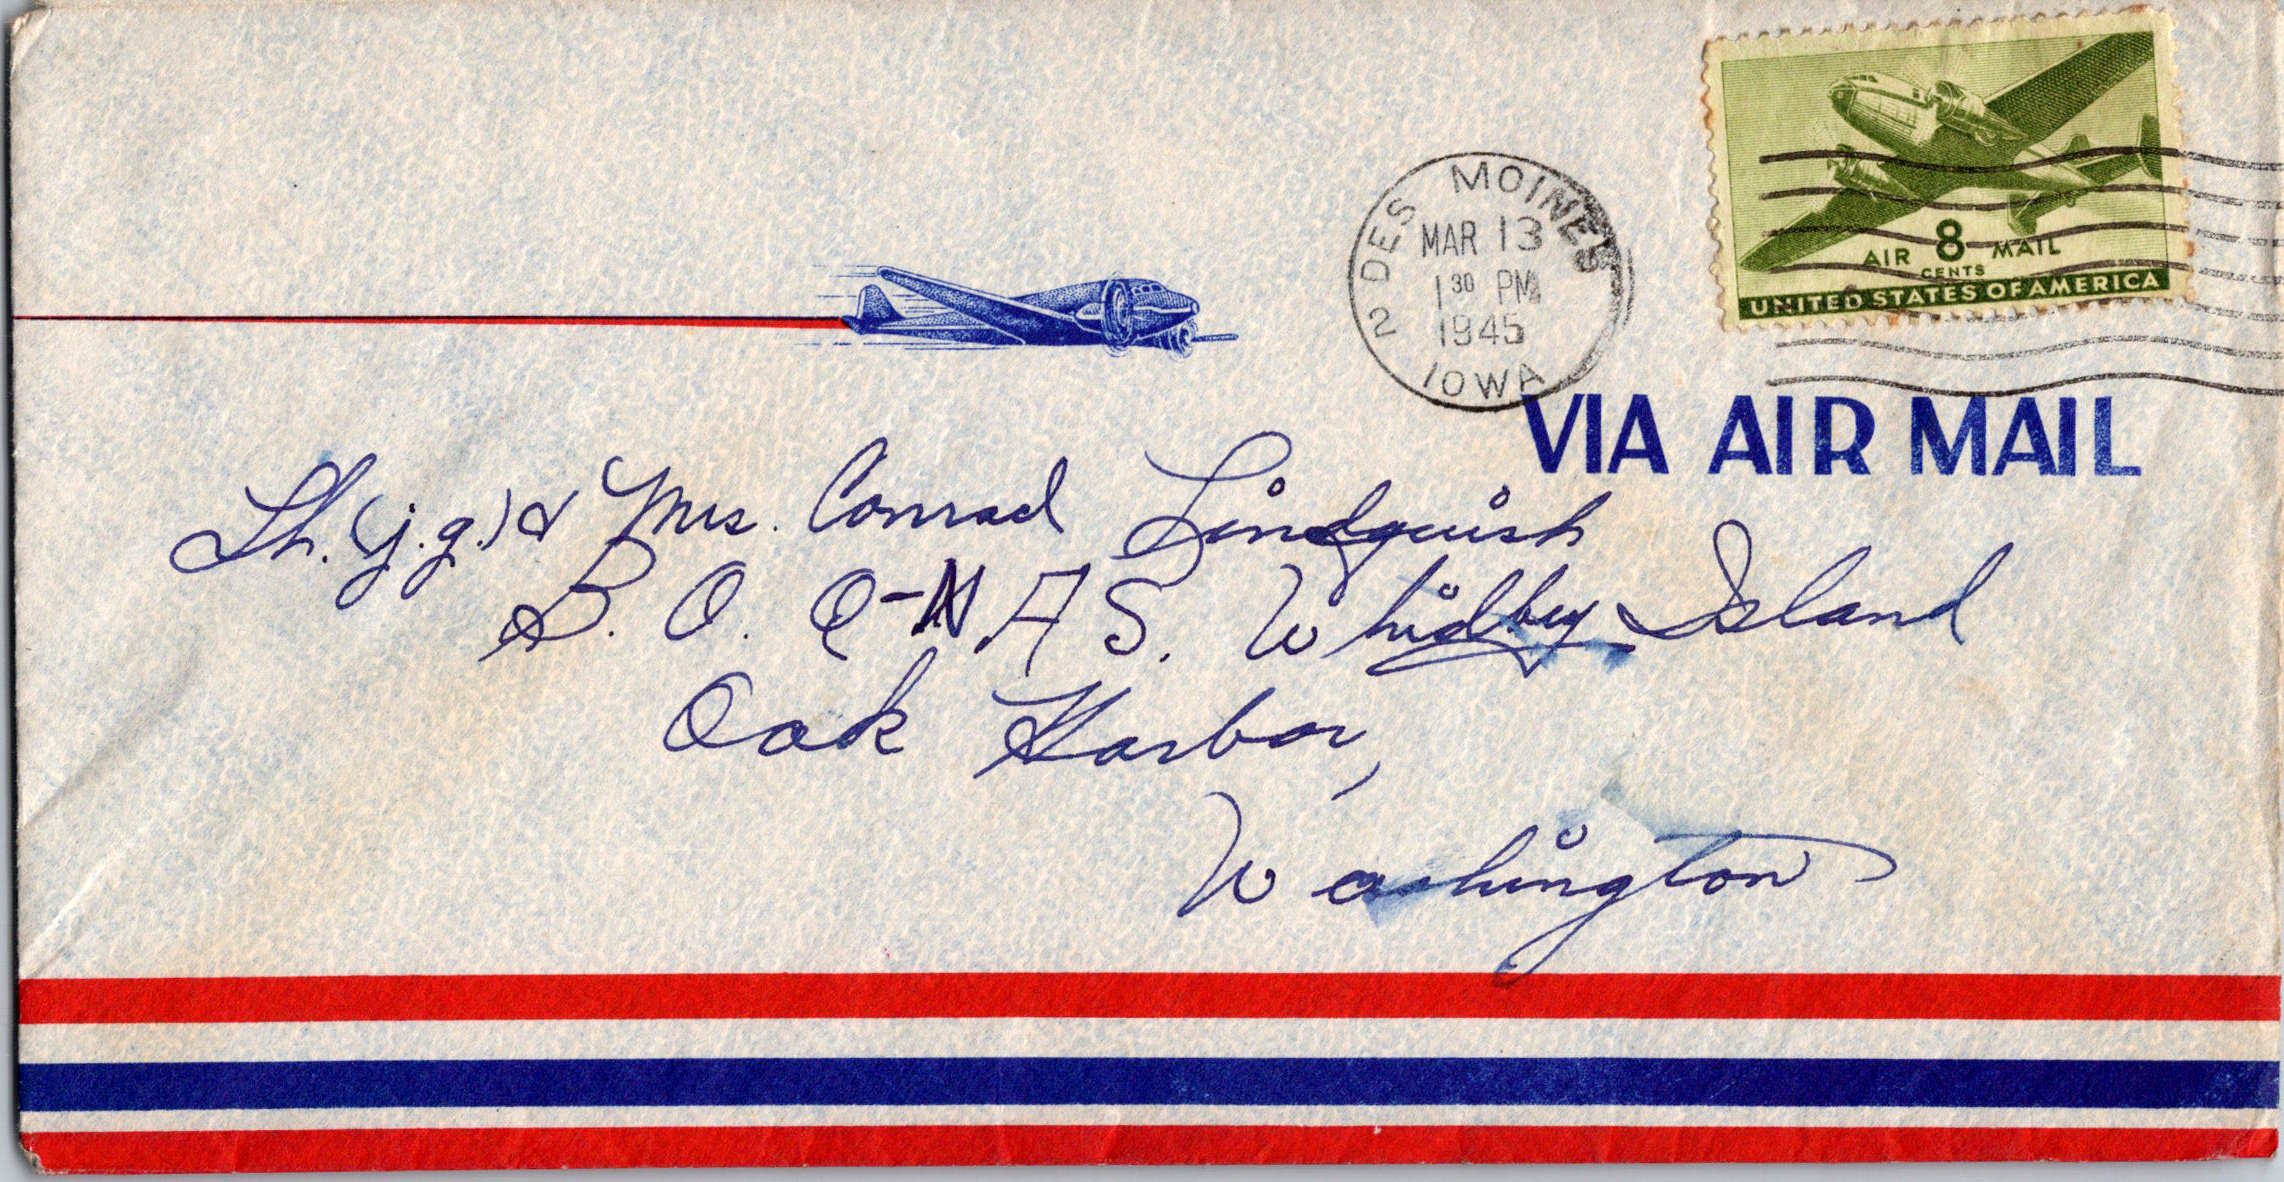 2 DES MOINES
MAR 13
1 30 PM
1945
IOWA
AIR 8 MAIL
CENTS
UNITED STATES OF AMERICA
VIA AIR MAIL
Lt. (j.g.) & Mrs. Conrad Lindquist
B. O. Q-NAS. Whidbey Island
Oak Harbor,
Washington